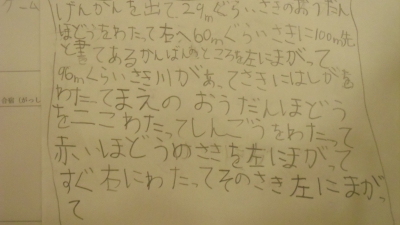 ゲーム
げんかんを出て29mぐらいさきのおうだん
ほどうをわたって右へ60mぐらいさきに100m先
と書てあるかんばんのところを左にまがって、
96mぐらいさき川があってさきにはしがを
わたてまえの おうだんほどう
を二こわたってしんごうをわたって
赤いほどうのさきを左にまがって
すぐ右にわたってそのさき左にまがっ
て